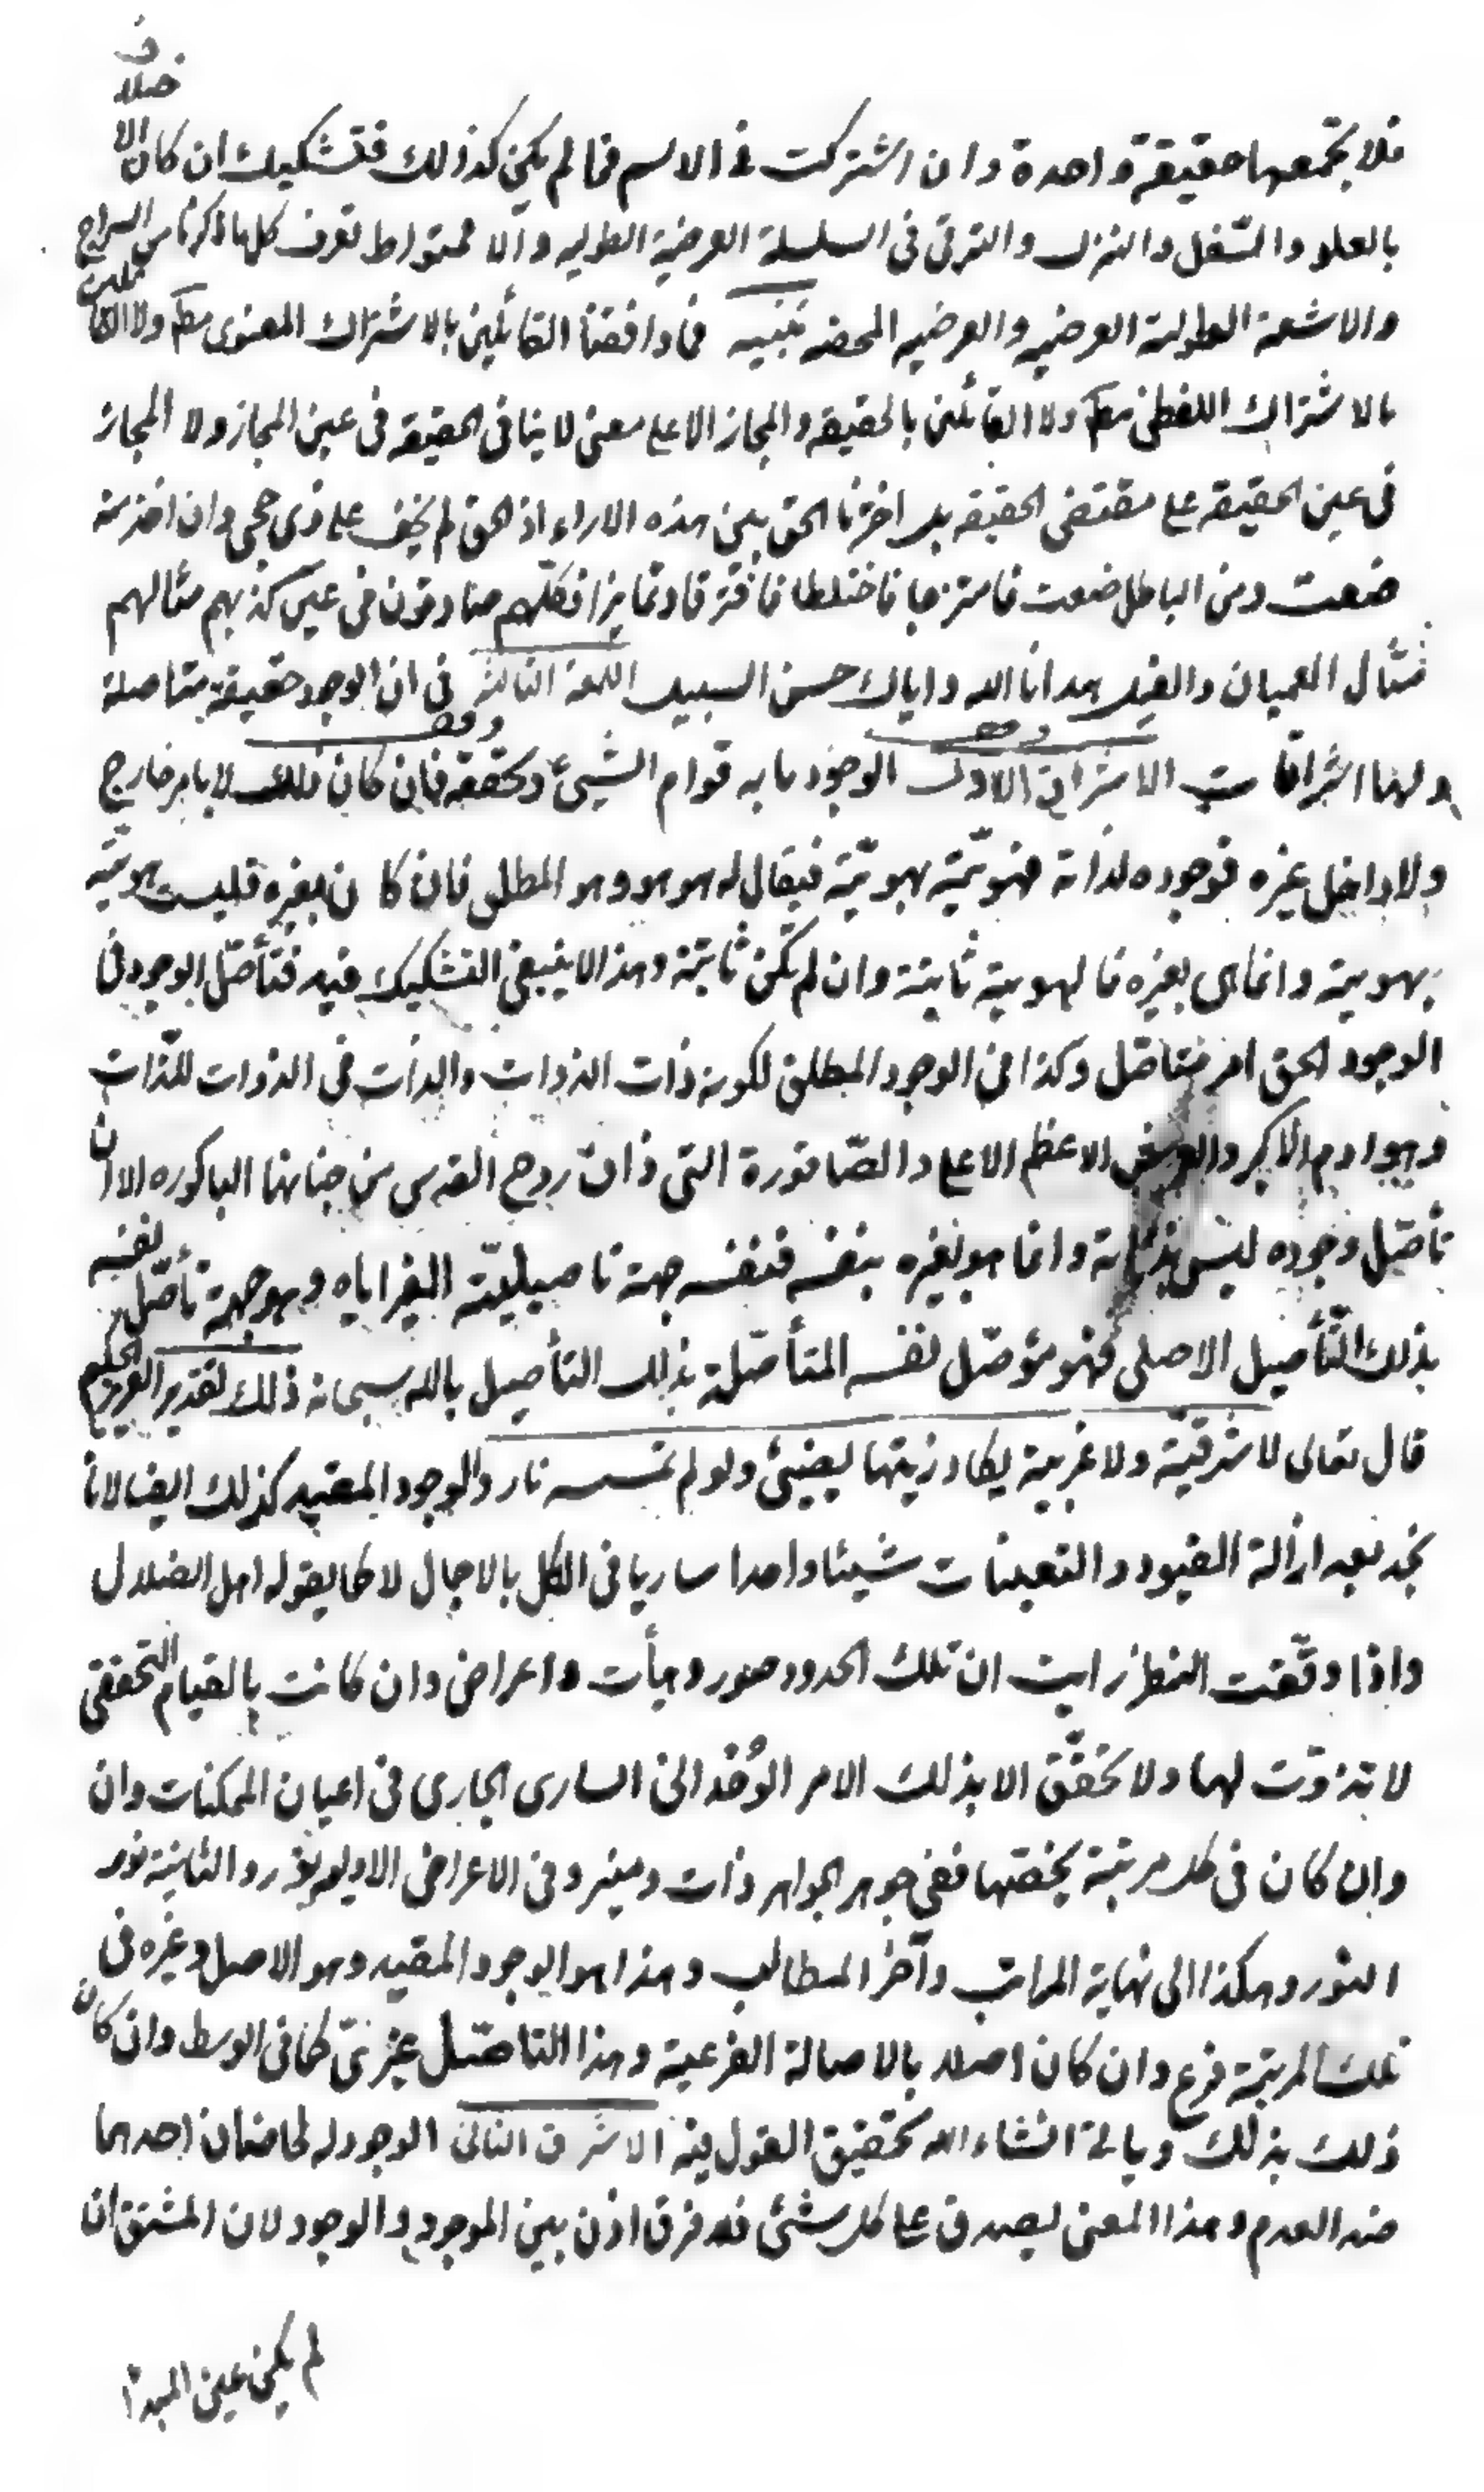 فلا تجمعها حقيقة واحدة وان اشتركت في الاسم فما لم يكن كذلك فتشكيك ان كان الاختلاف
بالعلو والتسفل والتنزل والترقي في السلسلة العرضية الطوليه والا فمتواط تعرف كلما ذكرنا من السراج
والاشعة الطولية العرضيه والعرضيه المحضه تنبيه فما وافقنا القائلين بالاشتراك المعنوي مط ولا القائلين
بالاشتراك اللفظي مط ولا القائلين بالحقيقه والمجاز الا على معنى لا ينافي الحقيقه في عين المجاز ولا المجاز
في عين الحقيقه على مقتضى الحقيقه بل اخذنا الحق بين هذه الاراء اذ الحق لم يخف على ذي حجى وان اخذ منه
ضغث ومن الباطل ضغث فامتزجا فاختلطا فافترقا وتمايزا فكلهم صادقون في عين كذبهم مثالهم
مثال العميان والفيل هدانا الله واياك حسن السبيل اللمعة الثالثة في ان الوجود حقيقة متاصلة
ولها اشراقات الاشراق الاول الوجود ما به قوام الشيئ وتحققه فان كان ذلك لا بامر خارج
ولا داخل غيره فوجوده لذاته فهويته بهويته فيقال له هو هو وهو المطلق فان كان بغيره فليست هويته
بهويته وانما هي بغيره فالهوية ثابتة وان لم تكن ثابتة وهذا لا ينبغي التشكيك فيه فتأصل الوجود في
الوجود الحق امر متاصل وكذا في الوجود المطلق لكونه ذات الذوات والذات في الذوات للذات
وهو ادم الاكبر والعرش الاعظم الاعلى والصاقورة التي ذاق روح القدس من جنانها الباكوره الا ان
تأصل وجوده ليس بذاته وانما هو بغيره بنفسه فنفسه جهة تاصيلية الغير اياه وهو جهة تأصل نفسه
بذلك التأصيل الاصلي فهو مؤصل نفسه المتأصلة بذلك التأصيل بالله سبحانه ذلك تقدير العزيز الحكيم
قال تعالى لا شرقية ولا غربية يكاد زيتها يضيئ ولو لم تمسسه نار والوجود المقيد كذلك ايضا لانا
نجد بعد ازالة القيود والتعينات شيئا واحدا ساريا في الكل بالاجمال لا كما يقوله اهل الضلال
واذا دققت النظر رايت ان تلك الحدود صور وهيأت واعراض وان كانت بالقيام التحققي
لا تذوت لها ولا تحقق الا بذلك الامر الوحداني الساري الجاري في اعيان الممكنات وان
وان كان في كل مرتبة بخصتها ففي جوهر الجواهر ذات ومنير وفي الاعراض الاوليه نور والثانية نور
النور وهكذا الى نهاية المراتب وآخر المطالب وهذا هو الوجود المقيد وهو الاصل وغيره في
تلك المرتبة فرع وان كان اصلا بالاصالة الفرعية وهذا التاصل غيري كما في الوسط وان كان
ذلك بذلك وياتي انشاء الله تحقيق القول فيه الاشراق الثاني الوجود له لحاظان احدهما
ضد العدم وهذا المعنى يصدق على كل شئ فلا فرق اذن بين الموجود والوجود لان المشتق ان
لم يكن عين المبدأ